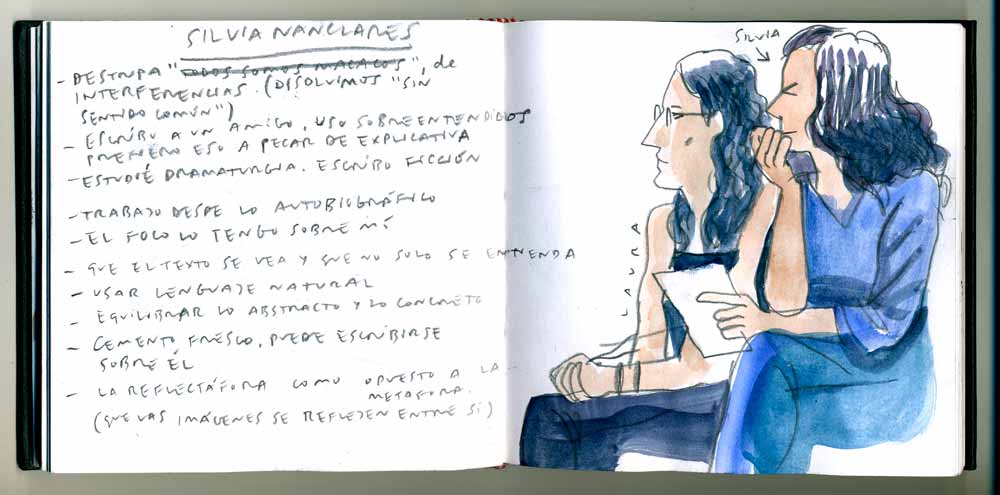 SILVIA NANCLARES
- DESTRIPA "TODOS SOMOS MACACOS", de
INTERFERENCIAS. (DISOLVIMOS "SIN
SENTIDO COMÚN")
- ESCRIBO A UN AMIGO, USO SOBREENTENDIDOS
PREFIERO ESO A PECAR DE EXPLICATIVA
- ESTUDIÉ DRAMATURGIA. ESCRIBO FICCIÓN
- TRABAJO DESDE LO AUTOBIOGRÁFICO
- EL FOCO LO TENGO SOBRE MÍ
- QUE EL TEXTO SE VEA Y QUE NO SOLO SE ENTIENDA
- USAR LENGUAJE NATURAL
- EQUILIBRAR LO ABSTRACTO Y LO CONCRETO
- CEMENTO FRESCO, PUEDE ESCRIBIRSE
SOBRE ÉL
- LA REFLECTÁFORA COMO OPUESTO A LA
METAFORA.
(QUE LAS IMÁGENES SE REFLEJEN ENTRE SÍ)
SILVIA
LAURA